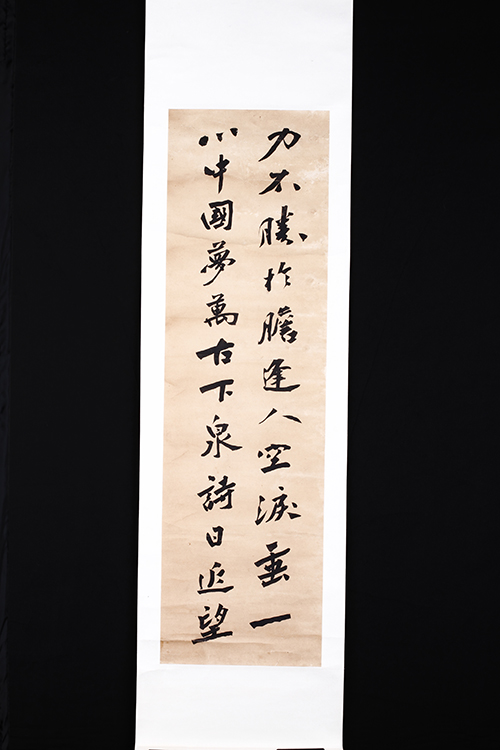 力不勝於膽逢人空淚垂一
心中國夢萬古下泉詩日近望